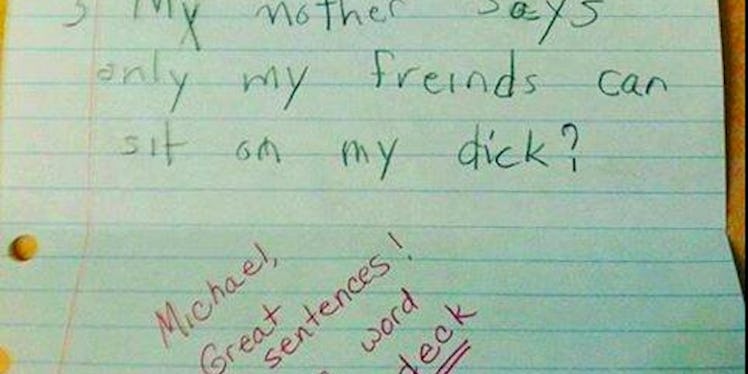 My mother says
only my freinds can
sit on my dick?
Michael,
Great
sentences!
word
deck